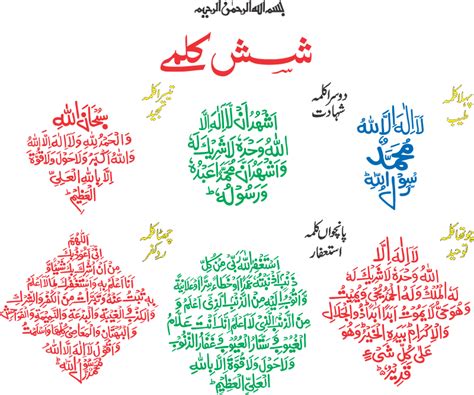 بسم اللہ الرحمٰن الرحیم
شش کلمے
پہلا کلمہ
طیب
لَا اِلٰهَ اِلَّا اللّٰهُ
مُحَمَّدٌ
رَّسُوْلُ اللّٰهِ
دوسرا کلمہ
شہادت
اَشْهَدُ اَنْ لَّا اِلٰهَ اِلَّا
اللّٰهُ وَحْدَهٗ لَا شَرِيْكَ لَهٗ
وَاَشْهَدُ اَنَّ مُحَمَّدًا عَبْدُهٗ
وَرَسُوْلُهٗ
تیسرا کلمہ
تمجید
سُبْحَانَ اللّٰهِ
وَالْحَمْدُ لِلّٰهِ وَلَا اِلٰهَ اِلَّا اللّٰهُ
وَاللّٰهُ اَكْبَرُ وَلَا حَوْلَ وَلَا قُوَّةَ
اِلَّا بِاللّٰهِ الْعَلِيِّ
الْعَظِيْمِ
چوتھا کلمہ
توحید
لَا اِلٰهَ اِلَّا
اللّٰهُ وَحْدَهٗ لَا شَرِيْكَ لَهٗ
لَهُ الْمُلْكُ وَلَهُ الْحَمْدُ يُحْيِيْ وَيُمِيْتُ
وَهُوَ حَيٌّ لَّا يَمُوْتُ اَبَدًا اَبَدًا ذُو الْجَلَالِ
وَالْاِكْرَامِ بِيَدِهِ الْخَيْرُ وَهُوَ
عَلٰى كُلِّ شَيْءٍ
قَدِيْرٌ
پانچواں کلمہ
استغفار
اَسْتَغْفِرُ اللّٰهَ رَبِّيْ مِنْ كُلِّ
ذَنْبٍ اَذْنَبْتُهٗ عَمَدًا اَوْ خَطَأً سِرًّا
الَّذِيْ لَا اَعْلَمُ اِنَّكَ اَنْتَ عَلَّامُ
الْغُيُوْبِ وَسَتَّارُ الْعُيُوْبِ وَغَفَّارُ الذُّنُوْبِ
وَلَا حَوْلَ وَلَا قُوَّةَ اِلَّا بِاللّٰهِ
الْعَلِيِّ الْعَظِيْمِ
چھٹا کلمہ
ردکفر
اَللّٰهُمَّ
اِنِّيْ اَعُوْذُ بِكَ
مِنْ اَنْ اُشْرِكَ بِكَ شَيْئًا
وَّاَنَا اَعْلَمُ بِهٖ وَاَسْتَغْفِرُكَ لِمَا لَا اَعْلَمُ بِهٖ
تُبْتُ عَنْهُ وَتَبَرَّأْتُ مِنَ الْكُفْرِ وَالشِّرْكِ وَ
الْكِذْبِ وَالْغِيْبَةِ وَالْبِدْعَةِ وَالنَّمِيْمَةِ وَالْفَوَاحِشِ
وَالْبُهْتَانِ وَالْمَعَاصِيْ كُلِّهَا وَاَسْلَمْتُ
وَاَقُوْلُ لَا اِلٰهَ اِلَّا اللّٰهُ
مُحَمَّدٌ رَّسُوْلُ
اللّٰهِ